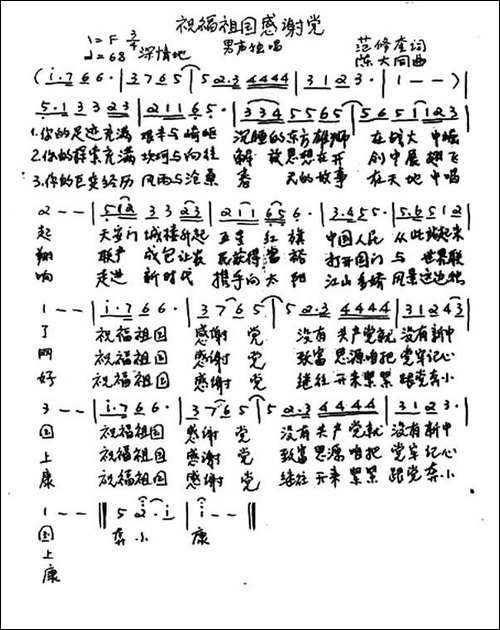 祝福祖国感谢党
1=F 3/4
♩=68 深情地 男声独唱 范修奎词
陈大同曲
(i·7 6 6· | 3 7 6 5 | 5 2·3 4 4 4 4 | 3 1 2 3· | 1 - - )
5·1 3 3 2 3 | 2 1 1 6 5· | 3 3 4 5 5 6 5 | 5 6 5 1 1 2 3
1.你的足迹充满 艰辛与崎岖 沉睡的东方雄狮 在 中崛
2.你的探索充满 坎坷与向往 解放思想在开 创中展翅飞
3.你的巨变经历 风雨与沧桑 春 天的故事 在天地中唱
2 - - | 5 1 2 3 3 2 3 | 2 1 1 6 5 6· | 3·4 5 5· | 5·6 5 1 2
起 天安门城楼升起 五星红旗 中国人民 从此站起来
翔 联产承包让农 民获得富裕 打开国门 与世界联
响 走进新时代 携手向太阳 江山多娇 风景这边独
1 - - | i·7 6 6· | 3 7 6 5 | 5 2·3 4 4 4 4 | 3 1 2 4 3
了 祝福祖国 感谢党 没有共产党就 没有新中
网 祝福祖国 感谢党 致富思源咱把 党牢记心
好 祝福祖国 感谢党 继往开来紧紧 跟党奔小
3 - - | i·7 6 6· | 3 7 6 5 | 5 2·3 4 4 4 4 | 3 1 2 3·
国 祝福祖国 感谢党 没有共产党就 没有新中
上 祝福祖国 感谢党 致富思源咱把 党牢记心
康 祝福祖国 感谢党 继往开来紧紧 跟党奔小
1 - - ‖ 5 2·i | i - - ‖
国 奔小 康
上
康